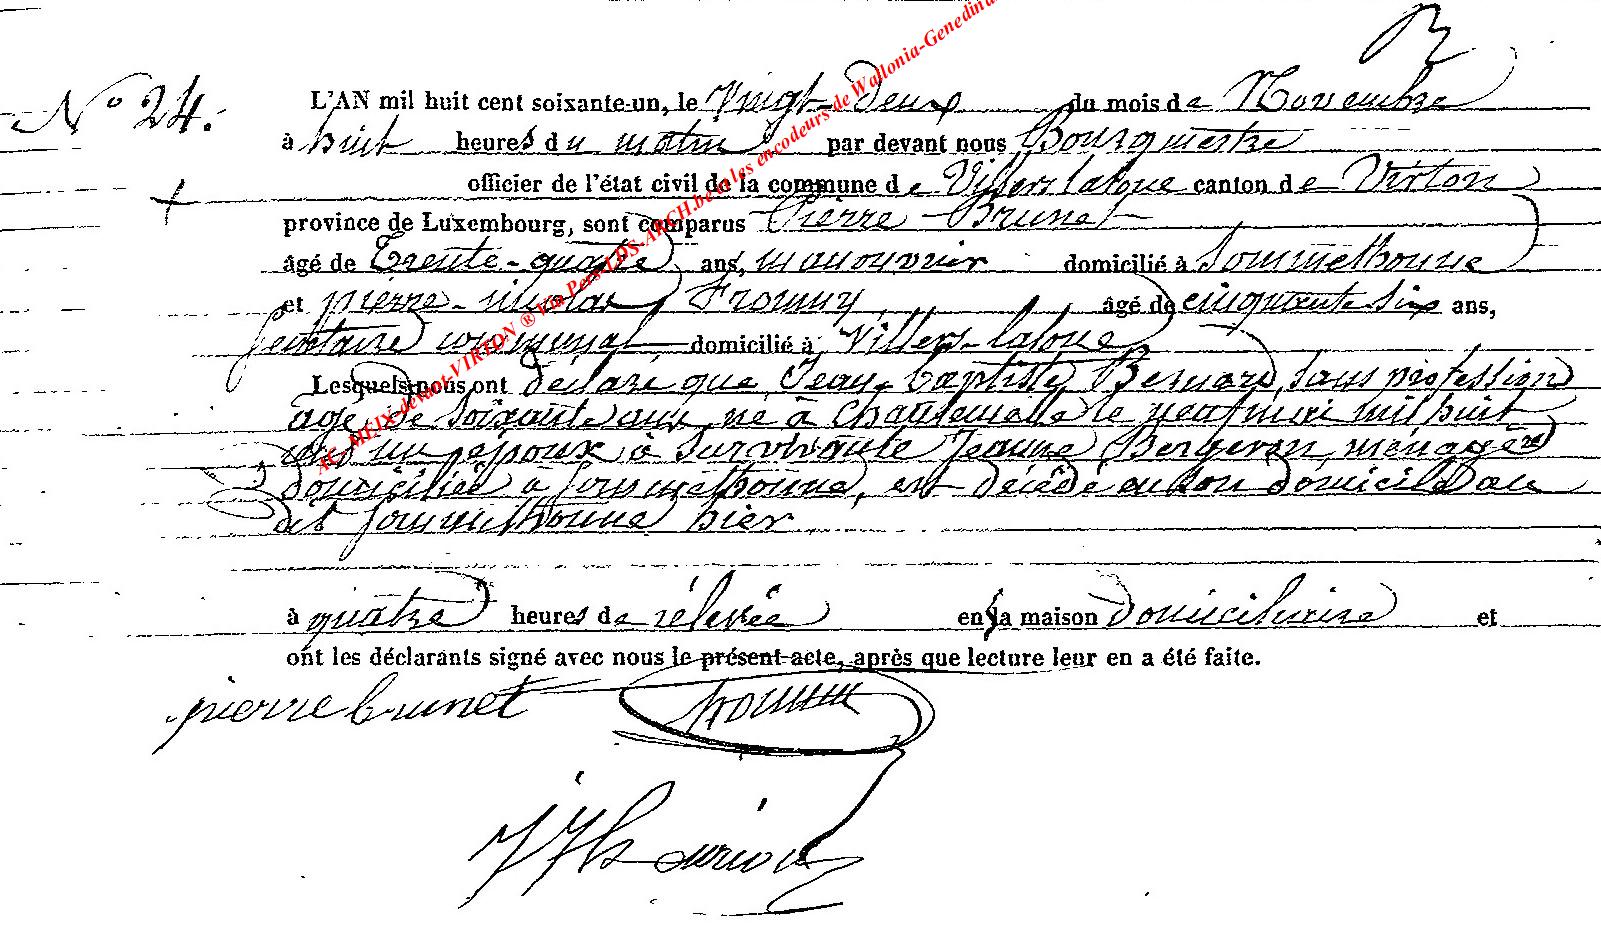 N° 24.
L'AN mil huit cent soixante-un, le Vingt-deux du mois de Novembre
à huit heures du matin par devant nous Bourgmestre
officier de l'état civil de la commune de Villers laloue canton de Virton
province de Luxembourg, sont comparus Pierre Brunet
âgé de Trente-quatre ans, manouvrier domicilié à Sommethonne
et pierre-nicolas Fromny âgé de cinquante six ans,
secrétaire communal domicilié à Villers-laloue
Lesquels nous ont déclaré que Jean-baptiste Bernard, sans profession
âgé de soixante ans né à Chantemelle le neuf mai mil huit
cent un époux à survivante Jeanne Bergeron, ménagère
domiciliée à Sommethonne, est décédé en son domicile au
dit Sommethonne hier
à quatre heures de rélevée en la maison domiciliaire et
ont les déclarants signé avec nous le présent acte, après que lecture leur en a été faite.
pierre brunet
AC-MEIX-devant-VIRTON ® Via Pers-LDS-ARCH.be et les encodeurs de Wallonia-Genedina